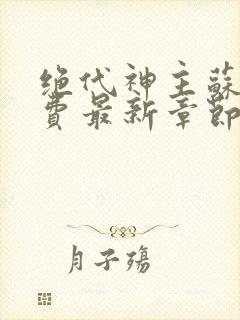 绝代神主蘇
費最新章節
月子殤